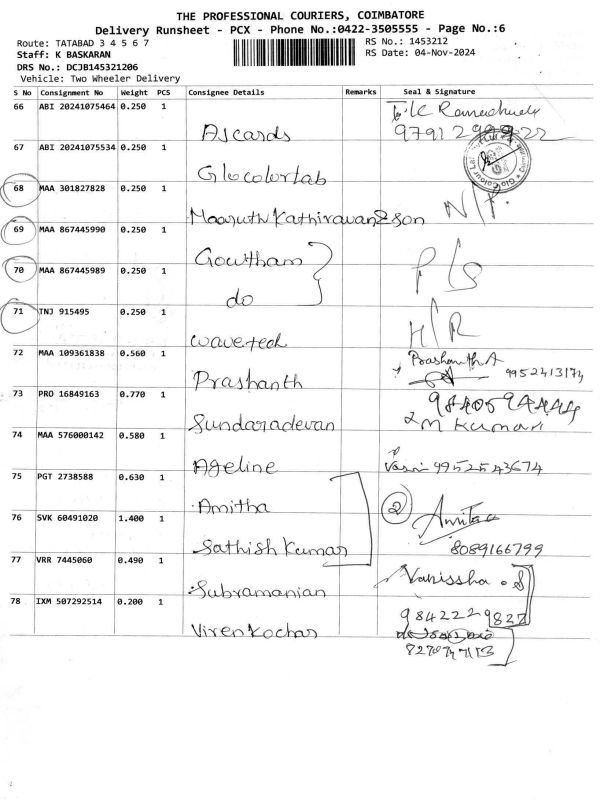 THE PROFESSIONAL COURIERS, COIMBATORE
Delivery Runsheet - PCX - Phone No.:0422-3505555 - Page No.:6
Route: TATABAD 3 4 5 6 7
RS No.: 1453212
Staff: K BASKARAN
RS Date: 04-Nov-2024
DRS No.: DCJB145321206
Vehicle: Two Wheeler Delivery
S No Consignment No Weight PCS Consignee Details Remarks Seal & Signature
66 ABI 20241075464 0.250 1 Ascards
67 ABI 20241075534 0.250 1 Glocolorlab
68 MAA 301827828 0.250 1 Maaruth Kathiravan & Son N/P.
69 MAA 867445990 0.250 1 Gowtham
70 MAA 867445989 0.250 1 do P/S
71 TNJ 915495 0.250 1 wavetech H/R
72 MAA 109361838 0.560 1 Prashanth Prashanth A
9952413174
73 PRO 16849163 0.770 1 Sundaradevan
M Kumar
74 MAA 576000142 0.580 1 Ageline 9952543674
75 PGT 2738588 0.630 1 Amitha 2
76 SVK 60491020 1.400 1 Sathish Kumar Amitha
8089166799
77 VRR 7445060 0.490 1 Subramanian Varissha.S
9842229822
78 IXM 507292514 0.200 1 Viren Kochar